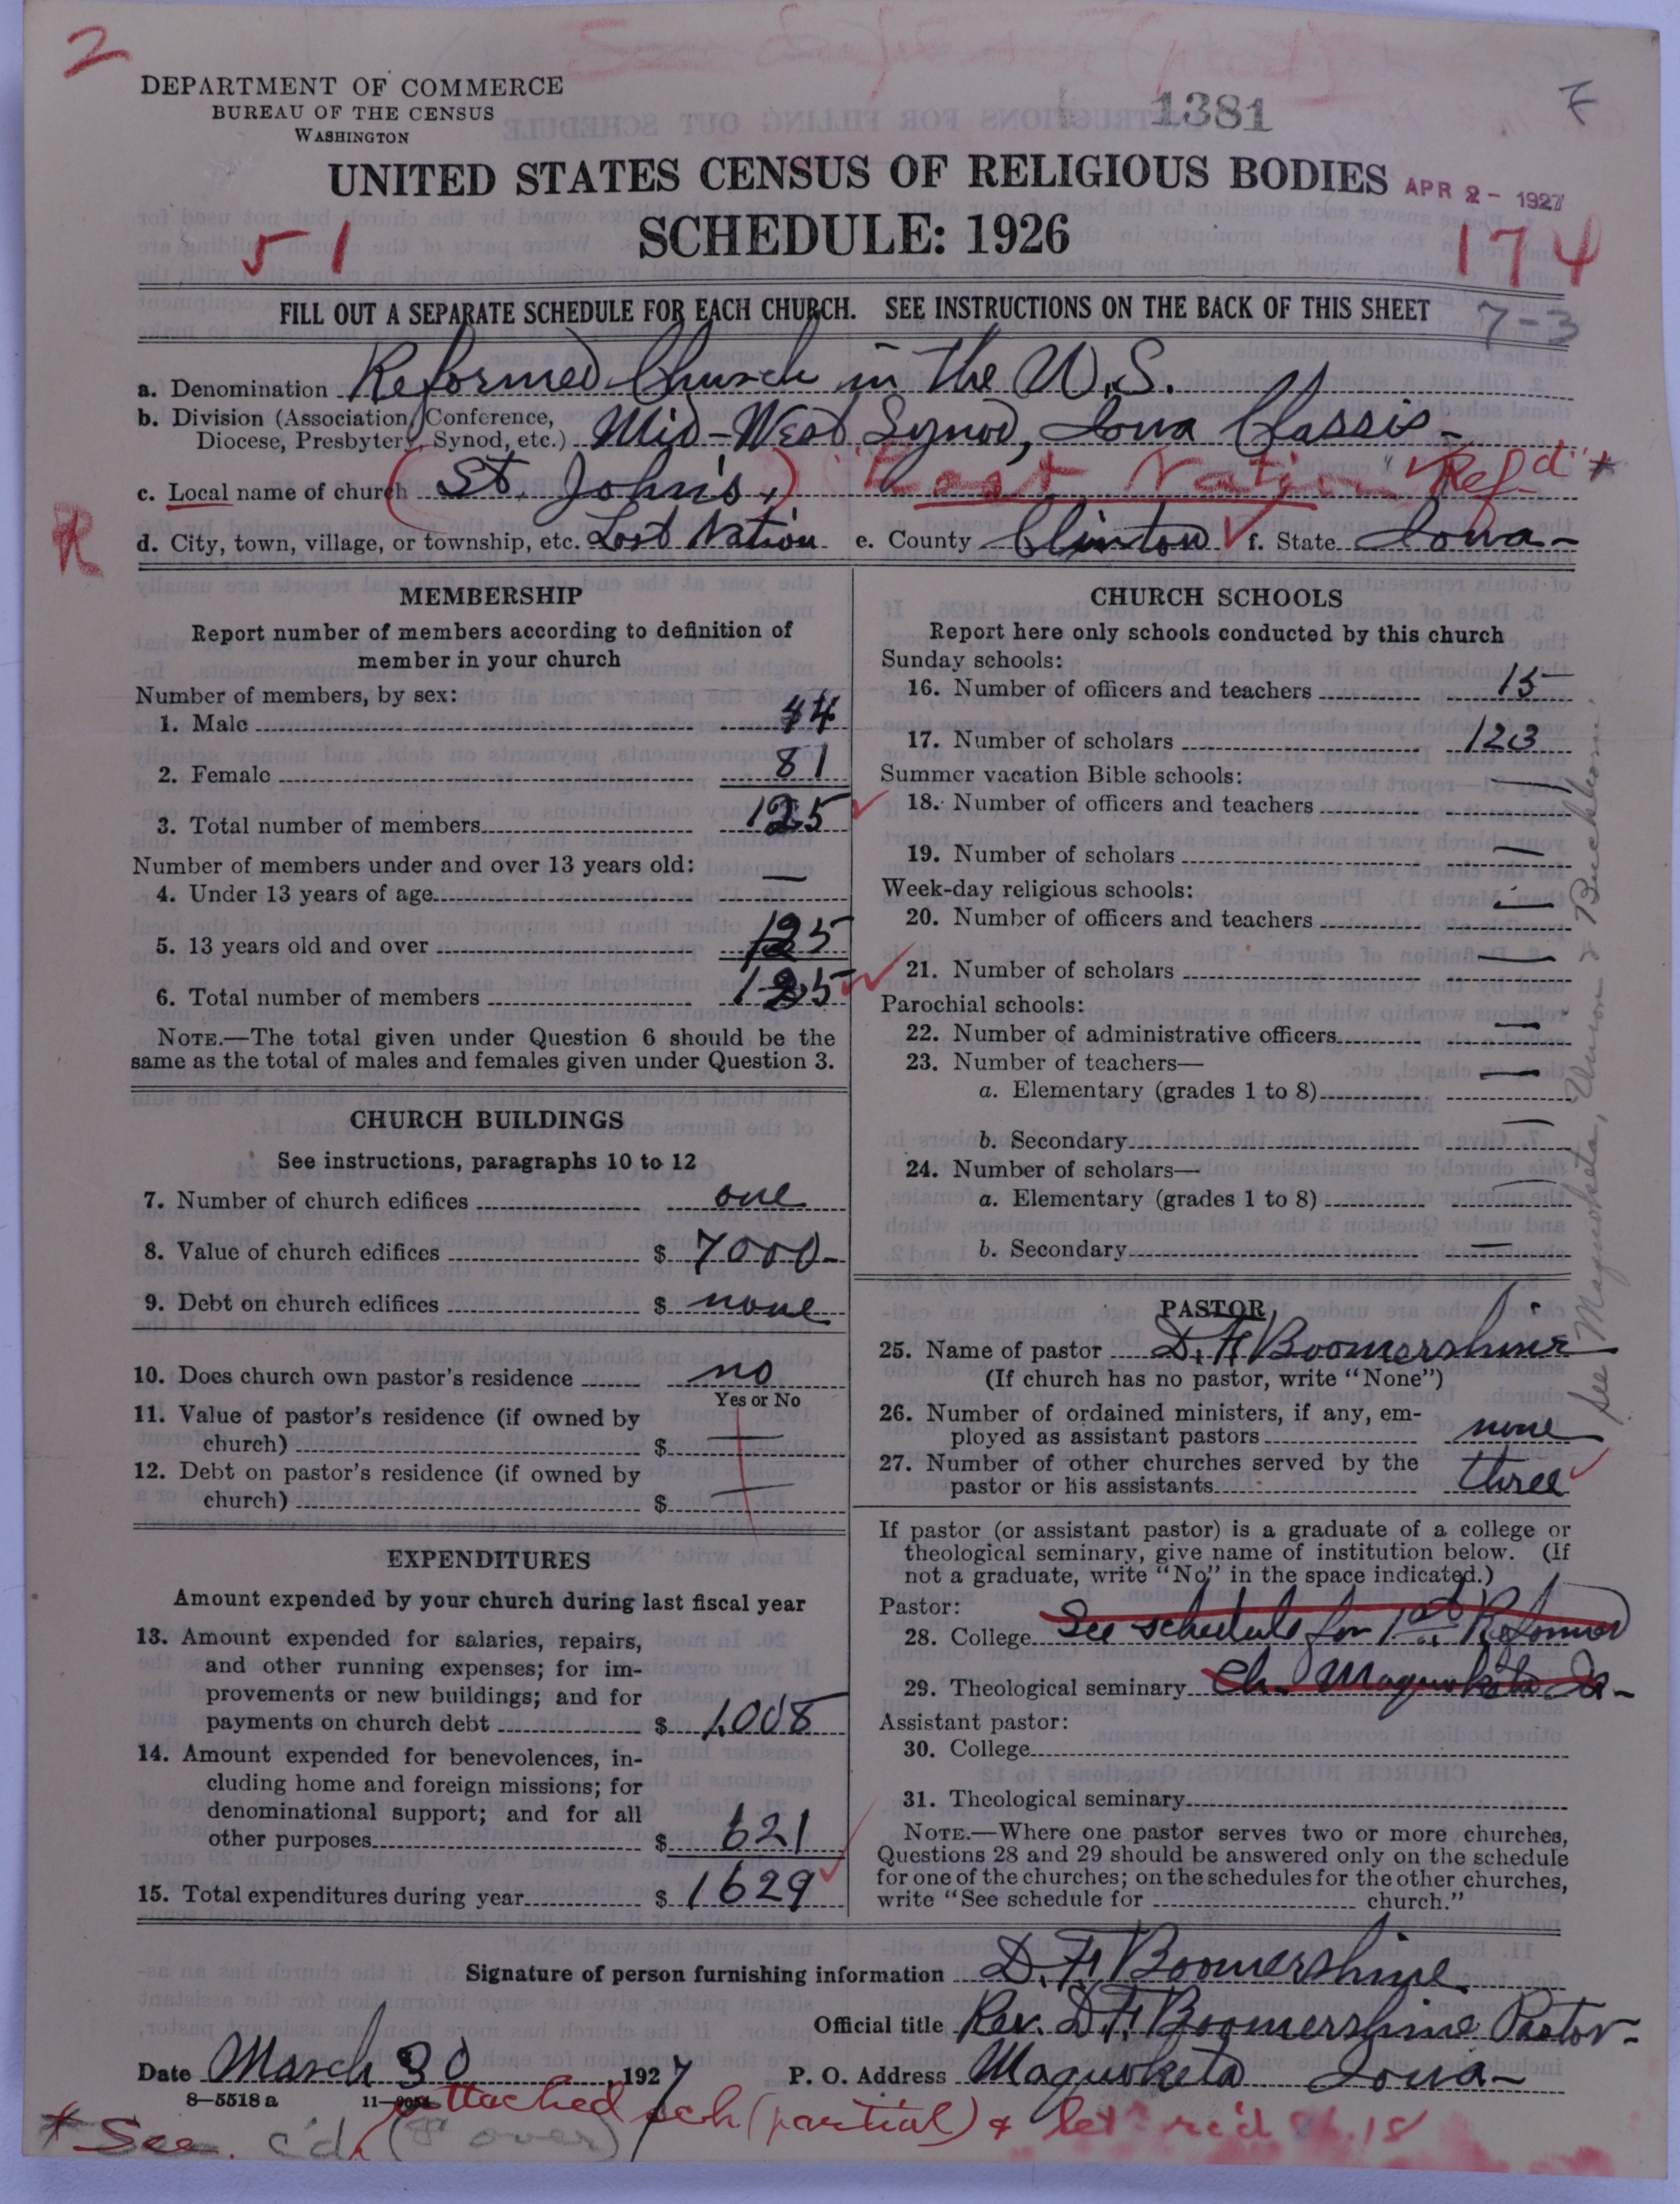 2
DEPARTMENT OF COMMERCE
BUREAU OF THE CENSUS
WASHINGTON
1381
F
UNITED STATES CENSUS OF RELIGIOUS BODIES
APR 2 - 1927
SCHEDULE: 1926
51
174
FILL OUT A SEPARATE SCHEDULE FOR EACH CHURCH. SEE INSTRUCTIONS ON THE BACK OF THIS SHEET
7-3
a. Denomination Reformed Church in the U.S.
b. Division (Association, Conference,
Diocese, Presbytery, Synod, etc.) Mid-West Synod, Iowa Classis-
c. Local name of church (St. John's.) "Lost Nation Ref'd" *
R
d. City, town, village, or township, etc. Lost Nation e. County Clinton f. State Iowa-
MEMBERSHIP
Report number of members according to definition of
member in your church
Number of members, by sex:
1. Male 44
2. Female 81
3. Total number of members 125
Number of members under and over 13 years old:
4. Under 13 years of age —
5. 13 years old and over 125
6. Total number of members 125
NOTE.—The total given under Question 6 should be the
same as the total of males and females given under Question 3.
CHURCH BUILDINGS
See instructions, paragraphs 10 to 12
7. Number of church edifices one
8. Value of church edifices $ 7000-
9. Debt on church edifices $ none
10. Does church own pastor's residence no
Yes or No
11. Value of pastor's residence (if owned by
church) $ —
12. Debt on pastor's residence (if owned by
church) $ —
EXPENDITURES
Amount expended by your church during last fiscal year
13. Amount expended for salaries, repairs,
and other running expenses; for im-
provements or new buildings; and for
payments on church debt $ 1,008
14. Amount expended for benevolences, in-
cluding home and foreign missions; for
denominational support; and for all
other purposes $ 621
15. Total expenditures during year $ 1629
CHURCH SCHOOLS
Report here only schools conducted by this church
Sunday schools:
16. Number of officers and teachers 15
17. Number of scholars 123
Summer vacation Bible schools:
18. Number of officers and teachers —
19. Number of scholars —
Week-day religious schools:
20. Number of officers and teachers —
21. Number of scholars —
Parochial schools:
22. Number of administrative officers —
23. Number of teachers—
a. Elementary (grades 1 to 8) —
b. Secondary —
24. Number of scholars—
a. Elementary (grades 1 to 8) —
b. Secondary —
See Maquoketa, Union & Buckhorn.
PASTOR
25. Name of pastor D. F. Boomershine
(If church has no pastor, write "None")
26. Number of ordained ministers, if any, em-
ployed as assistant pastors none
27. Number of other churches served by the
pastor or his assistants three
If pastor (or assistant pastor) is a graduate of a college or
theological seminary, give name of institution below. (If
not a graduate, write "No" in the space indicated.)
Pastor:
28. College See schedule for 1st Reformed
29. Theological seminary Ch. Maquoketa Ia-
Assistant pastor:
30. College
31. Theological seminary
NOTE.—Where one pastor serves two or more churches,
Questions 28 and 29 should be answered only on the schedule
for one of the churches; on the schedules for the other churches,
write "See schedule for church."
Signature of person furnishing information D. F. Boomershine
Official title Rev. D. F. Boomershine Pastor-
Date March 30, 1927 P. O. Address Maquoketa Iowa-
8-5518 a
* See attached sch (partial) & let rec'd
(over)